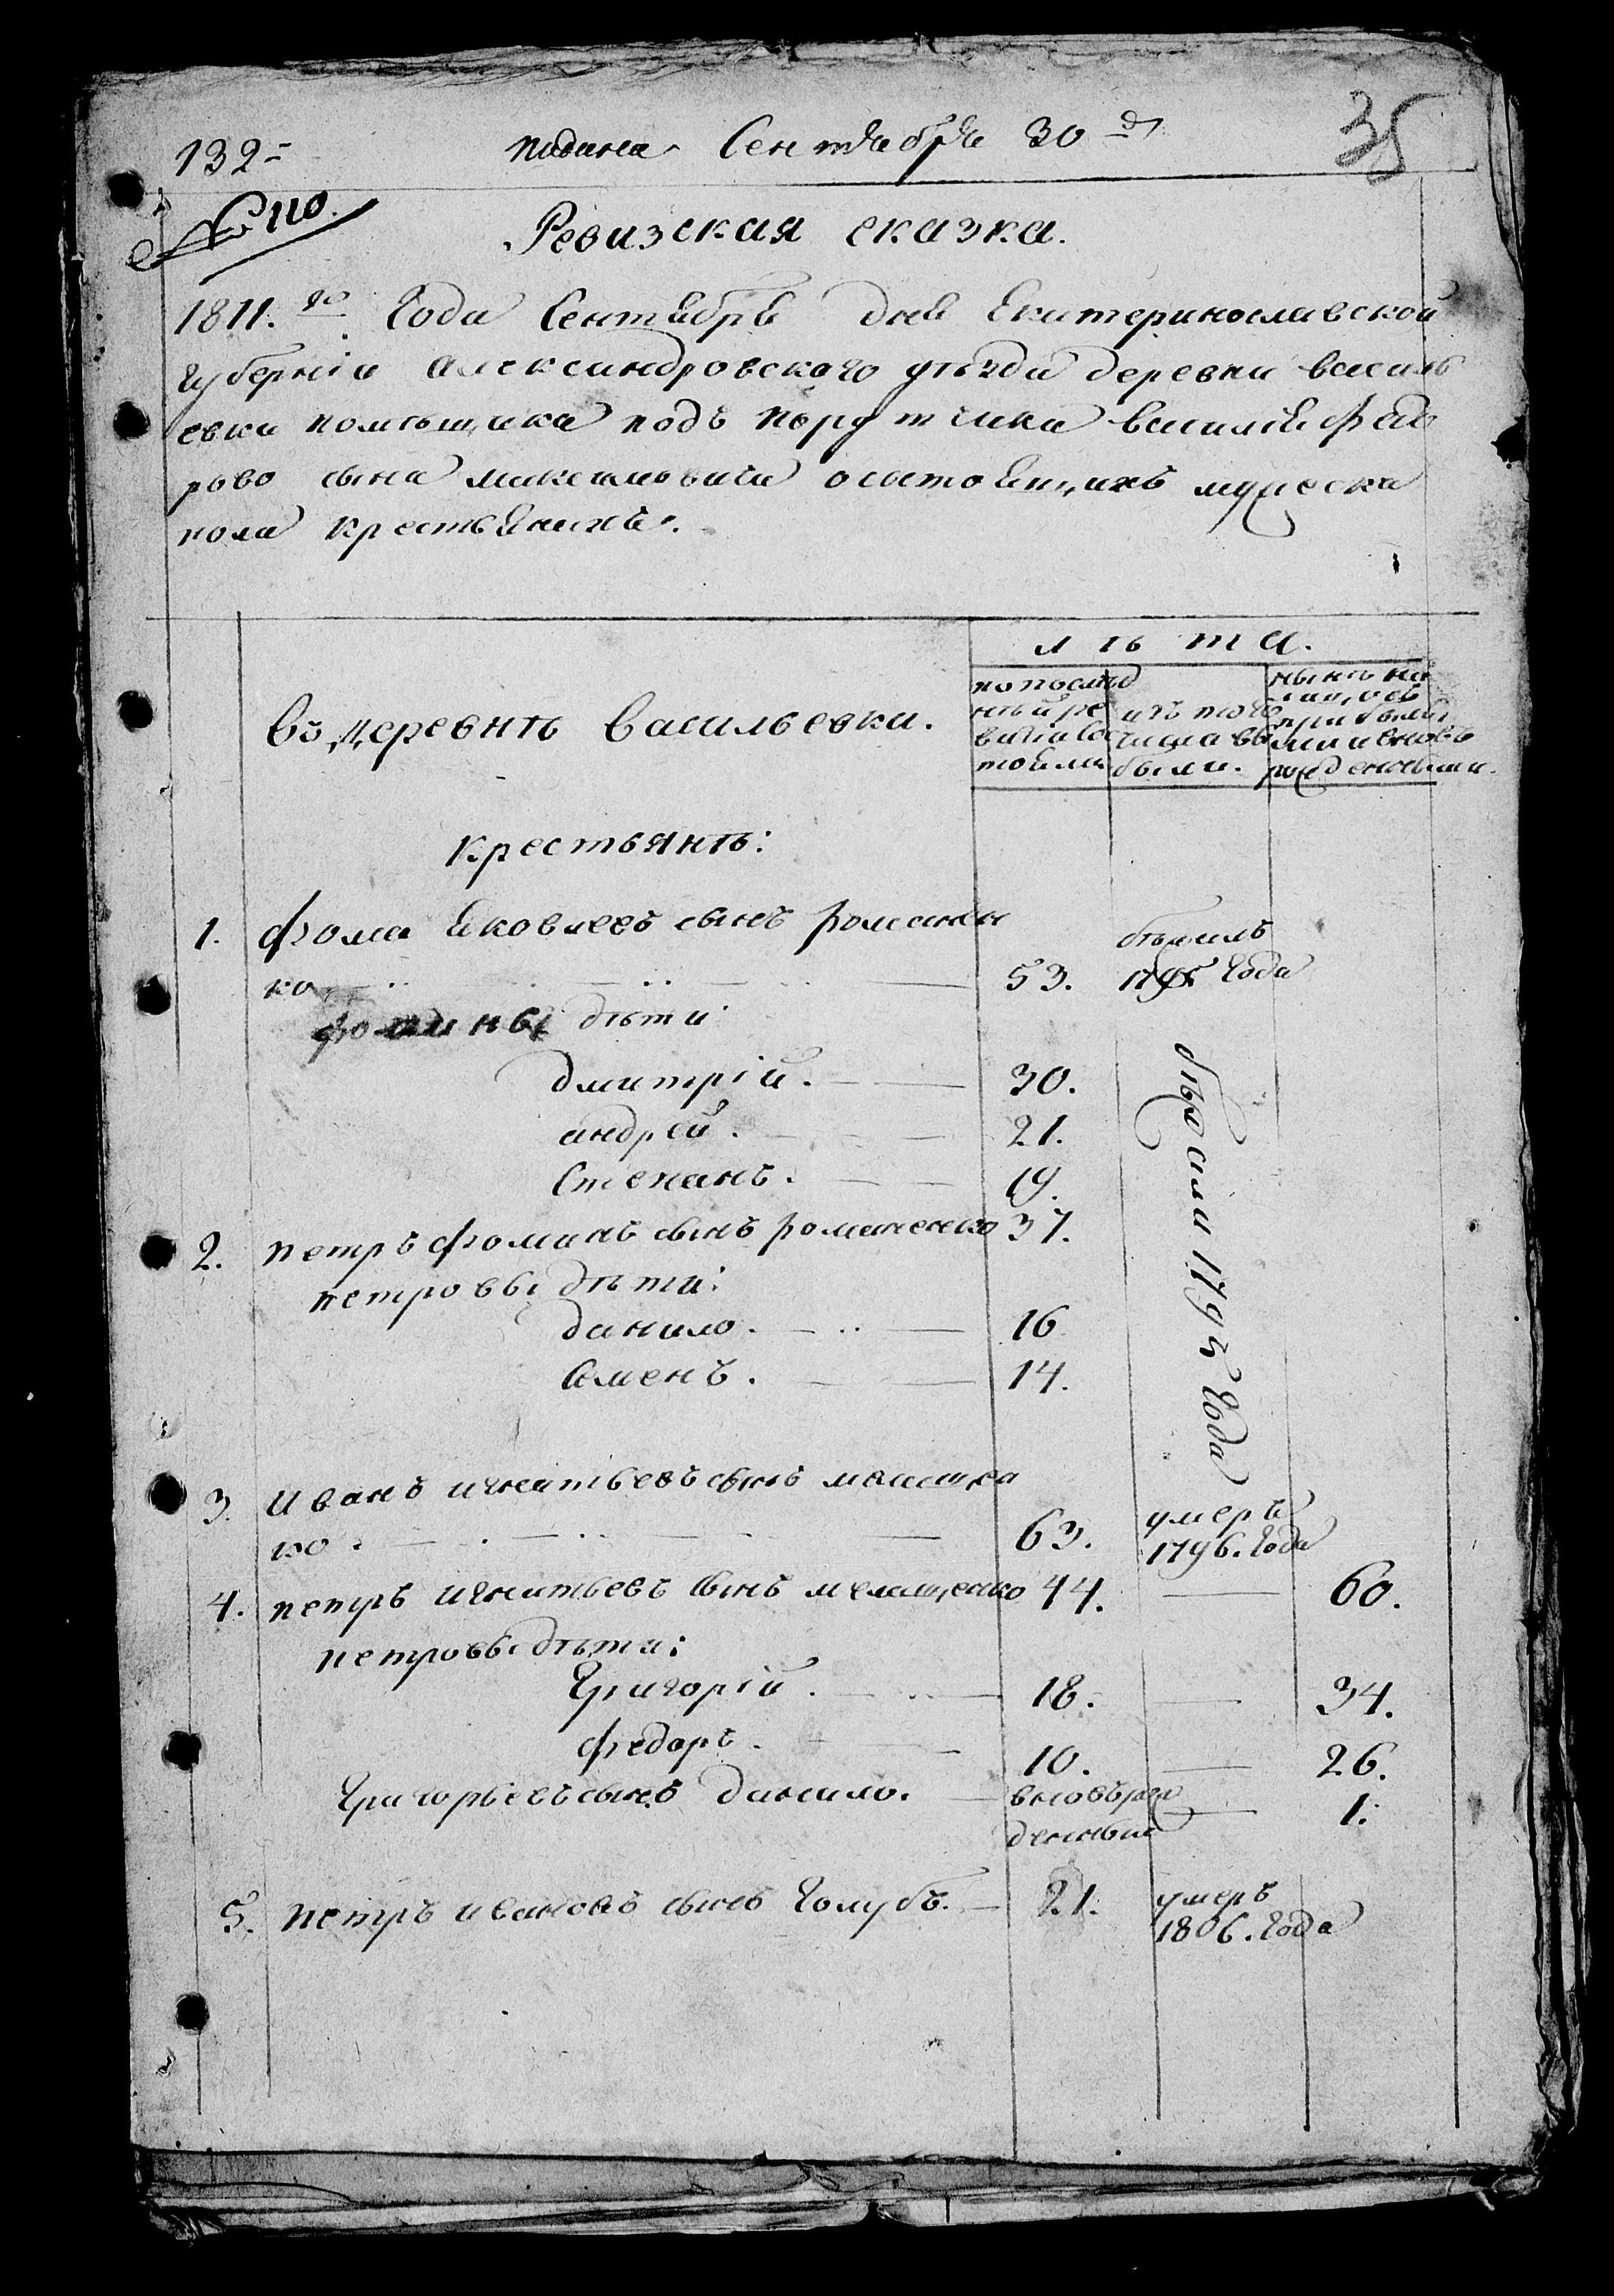 132 =
подана Сентября 30 д
35
№ 110.
Ревизская сказка.
1811.го Года Сентября дня Екатеринославской
Губерніи Александровскаго уѣзда деревни василь
евки помѣщика подъ порутчика василія Федо
рово сына максимовича о состоящихъ мужеска
пола крестьянехъ.
лѣта.
въ деревнѣ Васильевки.
по послѣд
ней ре
визіи со
тояли
изъ того
числа вы
были.
нынѣ на
лицо съ
прибылы
ми и вновь
рожденными.
крестьянѣ:
1. фома Яковлевъ сынъ романен
ко 53. бѣжалъ
1795 Года
фомины дѣти
дмитрій. 30.
андрей. 21.
Степанъ. 19.
бѣжали 1795 Года
2. петръ фоминъ сынъ романенко 37.
петровы дѣти:
данило. 16
Семенъ. 14.
3. Иванъ игнатьевъ сынъ
ко. 63. умеръ
1796. Года
4. петръ игнатьевъ сынъ 44. — 60.
петровы дѣти:
Григорій. 18. — 34.
федоръ. 10. — 26.
Григорьевъ сынъ данило. вновь рож
денный — 1.
5. петръ ивановъ сынъ Голубъ. — 21. умеръ
1806. Года